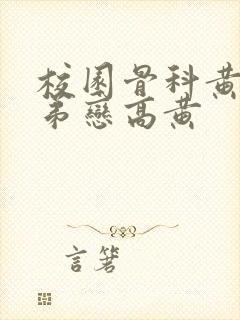 校园骨科黄
弟戀高黄
言箸